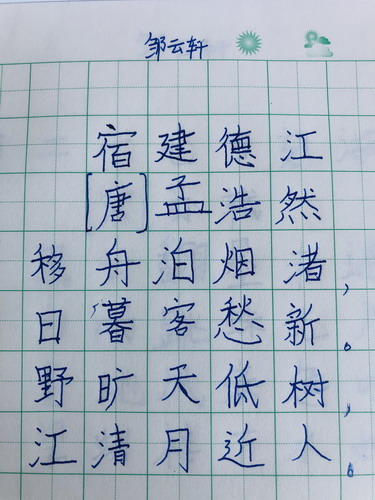 邹云轩
宿建德江
[唐]孟浩然
移舟泊烟渚,
日暮客愁新。
野旷天低树,
江清月近人。